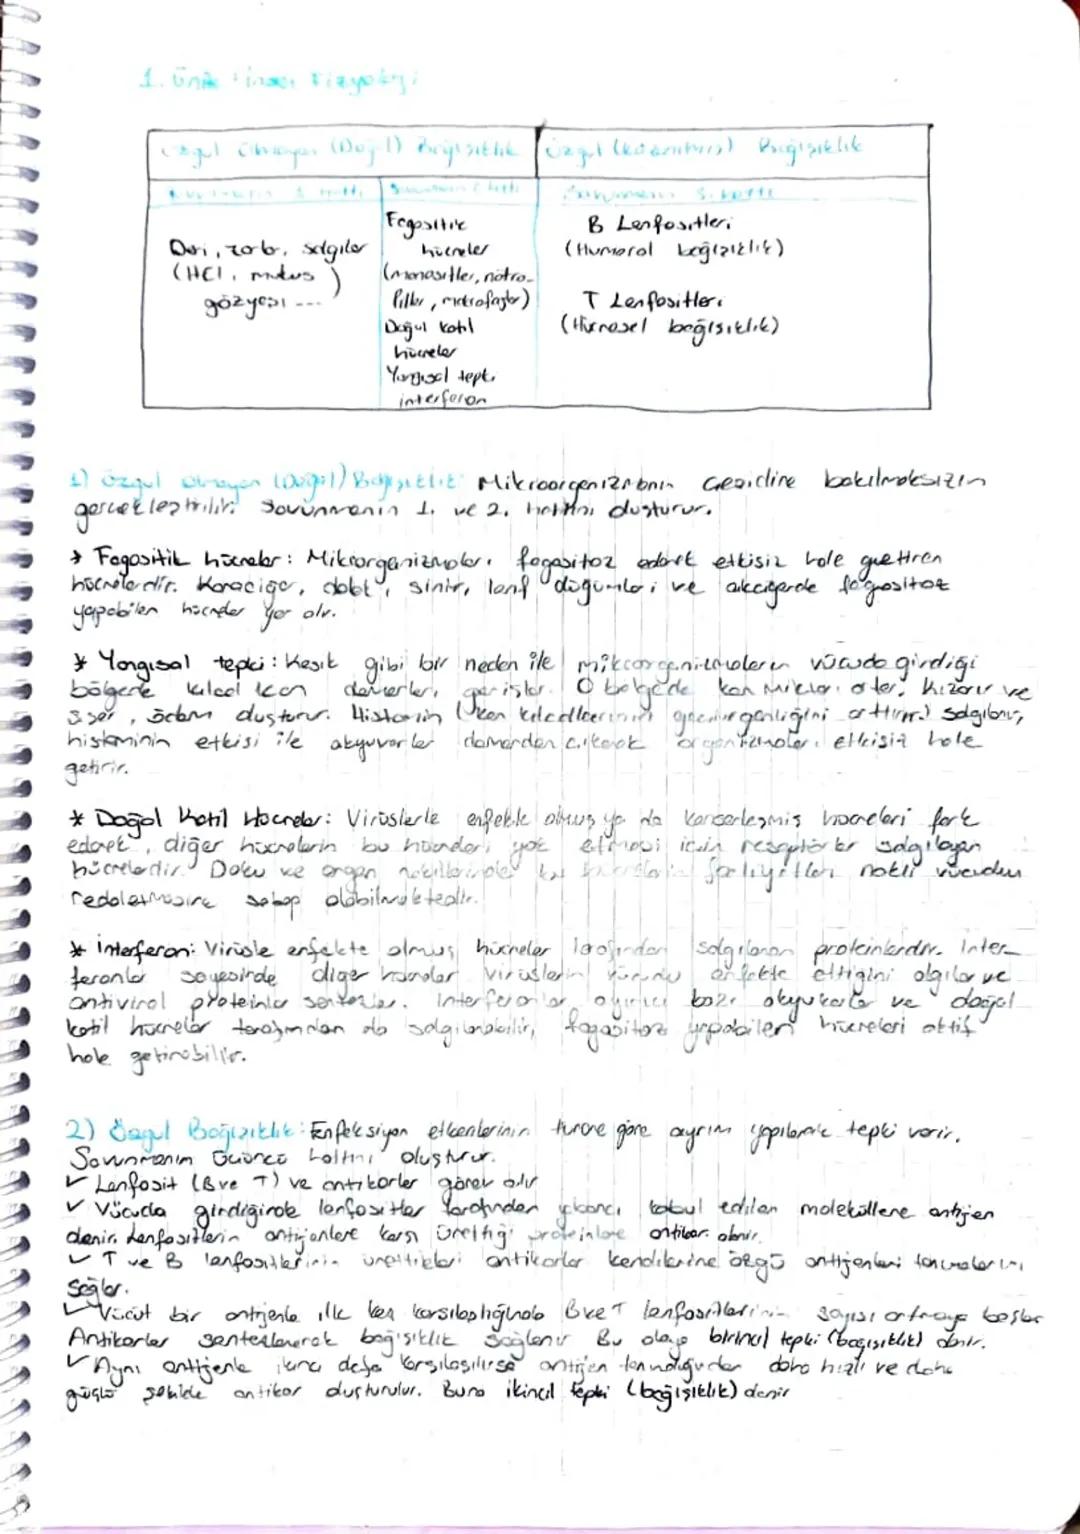 1. Ünite: İnsan Fizyolojisi
Özgül Olmayan (Doğal) Bağışıklık
Özgül (Kazanılmış) Bağışıklık
Savunmanın 1. hattı
Savunmanın 2. hattı
Savunmanın 3. hattı
Deri, zarlar, salgılar
(HCl, mukus)
gözyaşı ...
Fagositik
hücreler
(monositler, nötro-
filler, makrofajlar)
Doğal katil
hücreler
Yangısal tepki
interferon
B Lenfositleri
(Humoral bağışıklık)
T Lenfositleri
(Hücresel bağışıklık)
1) Özgül Olmayan (Doğal) Bağışıklık: Mikroorganizmanın çeşidine bakılmaksızın
gerçekleştirilir. Savunmanın 1. ve 2. hattını oluşturur.
* Fagositik hücreler: Mikroorganizmaları fagositoz ederek etkisiz hale getiren
hücrelerdir. Karaciğer, dalak, sinir, lenf düğümleri ve akciğerde fagositoz
yapabilen hücreler yer alır.
* Yangısal tepki: Kesik gibi bir neden ile mikroorganizmaların vücuda girdiği
bölgede kılcal kan damarları genişler. O bölgede kan miktarı artar. Kızarır ve
şişer, ödem oluşturur. Histamin (kan kılcallarının geçirgenliğini arttırır.) salgılanır,
histaminin etkisi ile akyuvarlar damardan çıkarak organizmaları etkisiz hale
getirir.
* Doğal Katil Hücreler: Virüslerle enfekte olmuş ya da kanserleşmiş hücreleri fark
ederek, diğer hücrelerin bu hücreleri yok etmesi için reseptörler salgılayan
hücrelerdir. Doku ve organ nakillerinde bu hücrelerin faaliyetleri nakli vücudun
reddetmesine sebep olabilmektedir.
* İnterferon: Virüsle enfekte olmuş hücreler tarafından salgılanan proteinlerdir. İnter-
feronlar sayesinde diğer hücreler virüslerin vücudu enfekte ettiğini algılar ve
antiviral proteinler sentezler. İnterferonlar ayrıca bazı akyuvarlar ve doğal
katil hücreler tarafından da salgılanabilir, fagositoz yapabilen hücreleri aktif
hale getirebilir.
2) Özgül Bağışıklık: Enfeksiyon etkenlerinin türüne göre ayrım yapılarak tepki verir.
Savunmanın üçüncü hattını oluşturur.
✓ Lenfosit (B ve T) ve antikorlar görev alır
✓ Vücuda girdiğinde lenfositler tarafından yabancı kabul edilen moleküllere antijen
denir. Lenfositlerin antijenlere karşı ürettiği proteinlere antikor denir.
✓ T ve B lenfositlerinin ürettikleri antikorlar kendilerine özgü antijenleri tanımalarını
sağlar.
✓ Vücut bir antijenle ilk kez karşılaştığında B ve T lenfositlerinin sayısı artmaya başlar
Antikorlar sentezlenerek bağışıklık sağlanır Bu olaya birincil tepki (bağışıklık) denir.
✓ Aynı antijenle ikinci defa karşılaşılırsa antijen tanındığından daha hızlı ve daha
güçlü şekilde antikor oluşturulur. Buna ikincil tepki (bağışıklık) denir